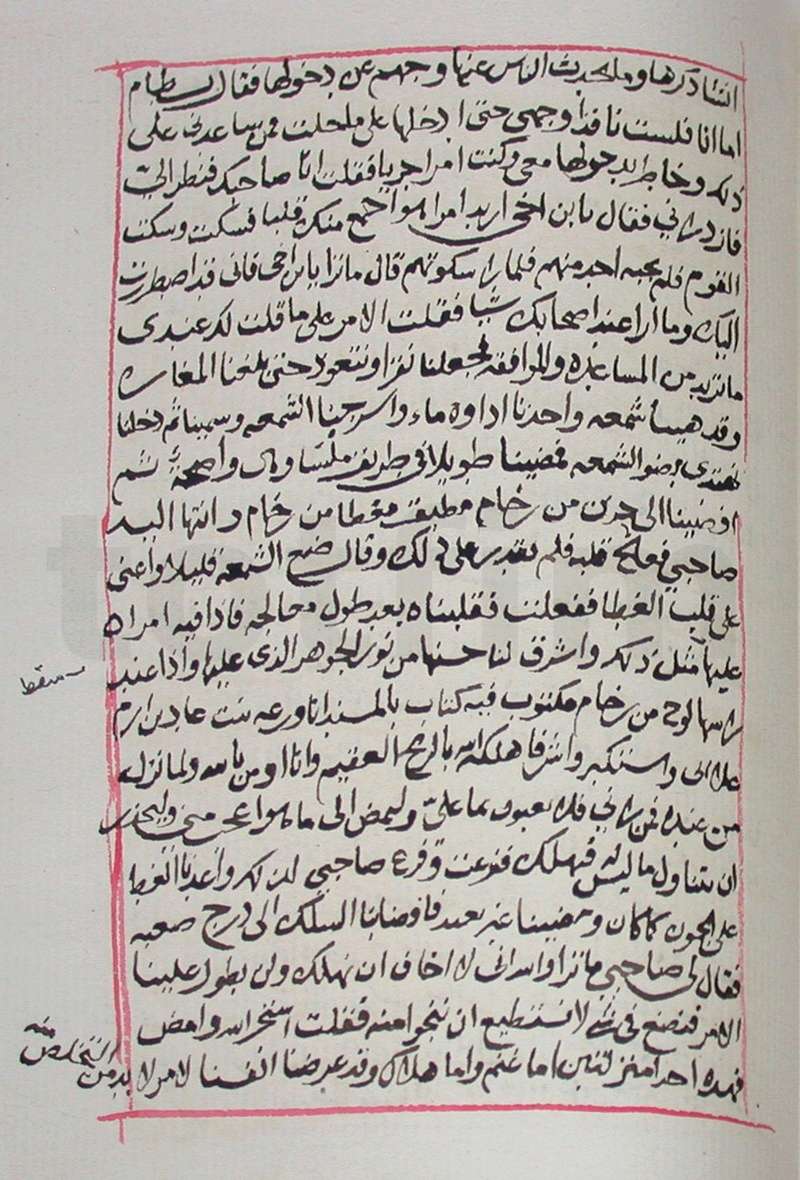 التنا ذكرها وما يحدث الناس عنها وجبنهم عن دخولها فقال بسطام
اما انا فلست نافدا وجهي حتى ادخلها على ما خيلت فمن يساعدني على
ذلك وخاطر بدخولها معي وكنت امرا جريا فقلت انا صاحبك فنظر الي
فازدراني فقال يا بن اخي اريد امرا هو اجمع منك قلبا فسكت وسكت
القوم فلم يجبه احد منهم فلما را سكوتهم قال ما ترا يا بن اخي فاني قد اضطررت
اليك وما ارا عند اصحابك شيا فقلت الامر على ما قلت لك عندي
ما تريد من المساعده والموافقه فجعلنا نقرا ونتعوذ حتى بلغنا المغاره
وقد هيينا شمعه واخذنا اداوه ماء واسرجنا الشمعه وسمينا ثم دخلنا
نهتدي بضو الشمعه فمضينا طويلا في طريق ملسا واضحة ثم
افضينا الى جرن من رخام مطبق مغطا من رخام وانتها اليه
صاحبي فعالج قلبه فلم يقدر على ذلك وقال ضع الشمعة قليلا واعني
على قلب الغطا ففعلت فقلبناه بعد طول معالجه فاذا فيه امراه
عليها مثل ذلك واشرق لنا حسنها من نور الجوهر الذي عليها واذا عند
راسها لوح من رخام مكتوب فيه كتاب بالمسند انا ورعه بنت عاد بن ارم
علا ابي واستكبر واشرفا هلكه الله بالريح العقيم وانا اومن بالله ولما نزل
من عنده فمن راني فلا يعبون بما علي وليمض الى ما هو اعجب مني وليحذر
ان يتناول ما ليس له فيهلك ففزعت وفزع صاحبي لذلك واعدنا الغطا
على الجرن كما كان ومضينا غير بعيد فافضا بنا السلك الى درج صعبه
فقال لي صاحبي ما ترا والله اني لا اخاف ان نهلك ولن يطول علينا
الامر فنضع في شي لا نستطيع ان ننجوا منه فقلت استخر الله وامض
فهذه احدا منزلتين اما غنم واما هلاك وقد عرضنا انفسنا لامر لا
بد من التخلص منه
سقط